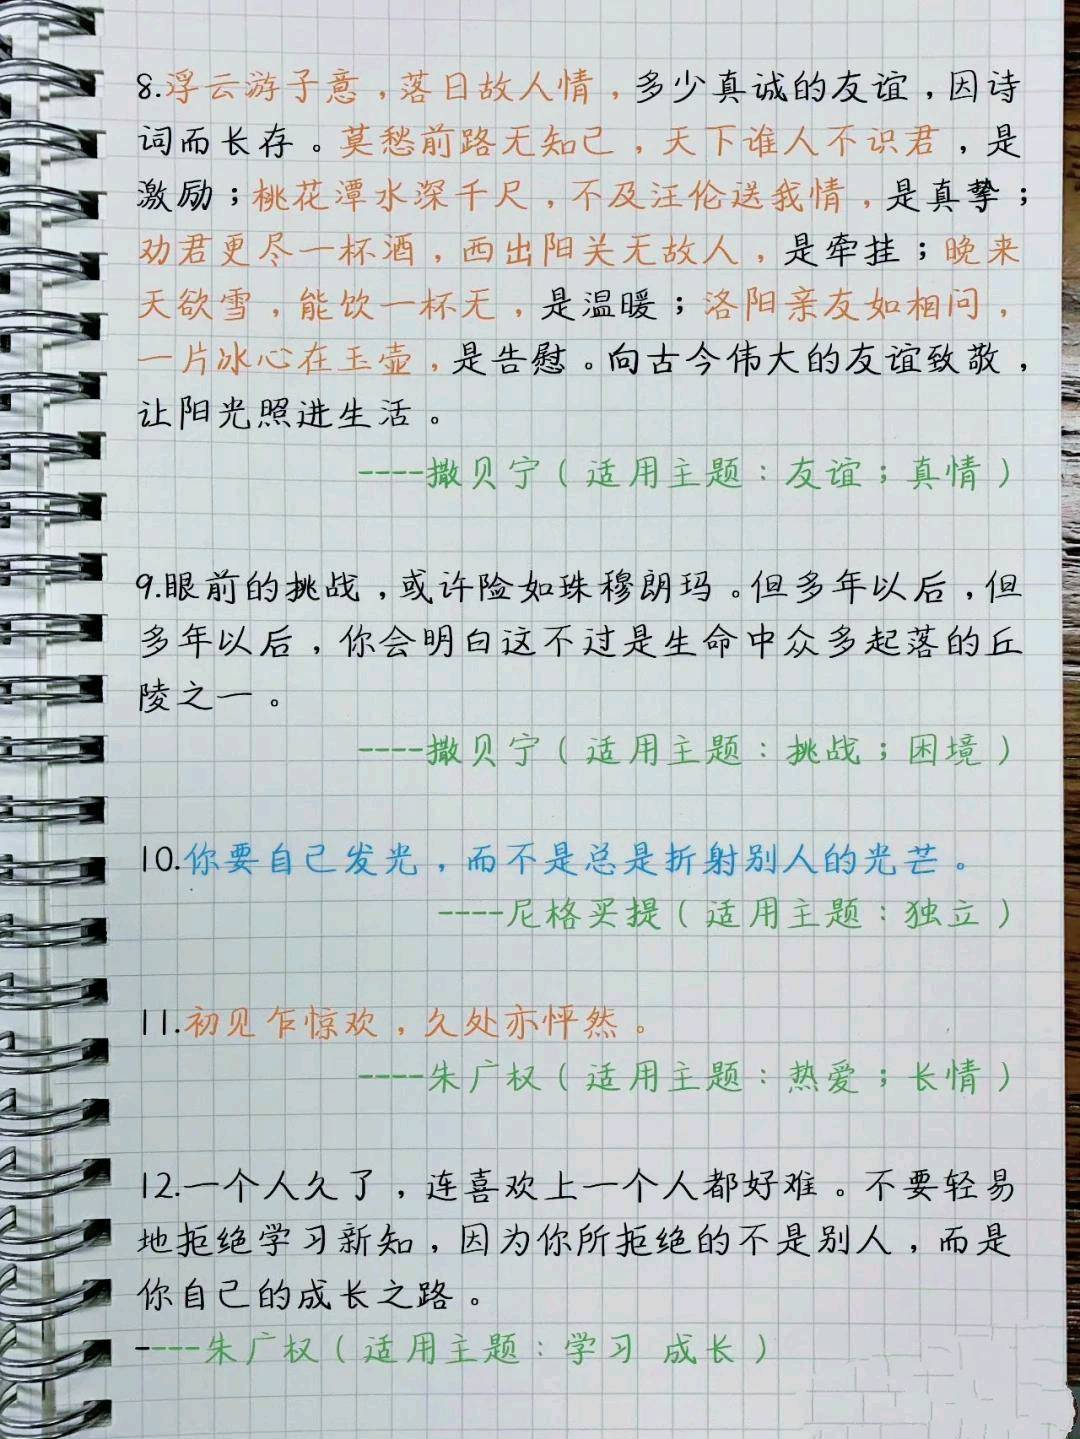 8.浮云游子意，落日故人情，多少真诚的友谊，因诗
词而长存。莫愁前路无知己，天下谁人不识君，是
激励；桃花潭水深千尺，不及汪伦送我情，是真挚；
劝君更尽一杯酒，西出阳关无故人，是牵挂；晚来
天欲雪，能饮一杯无，是温暖；洛阳亲友如相问，
一片冰心在玉壶，是告慰。向古今伟大的友谊致敬，
让阳光照进生活。
----撒贝宁（适用主题：友谊；真情）
9.眼前的挑战，或许险如珠穆朗玛。但多年以后，但
多年以后，你会明白这不过是生命中众多起落的丘
陵之一。
----撒贝宁（适用主题：挑战；困境）
10.你要自己发光，而不是总是折射别人的光芒。
----尼格买提（适用主题：独立）
11.初见乍惊欢，久处亦怦然。
----朱广权（适用主题：热爱；长情）
12.一个人久了，连喜欢上一个人都好难。不要轻易
地拒绝学习新知，因为你所拒绝的不是别人，而是
你自己的成长之路。
----朱广权（适用主题：学习 成长）